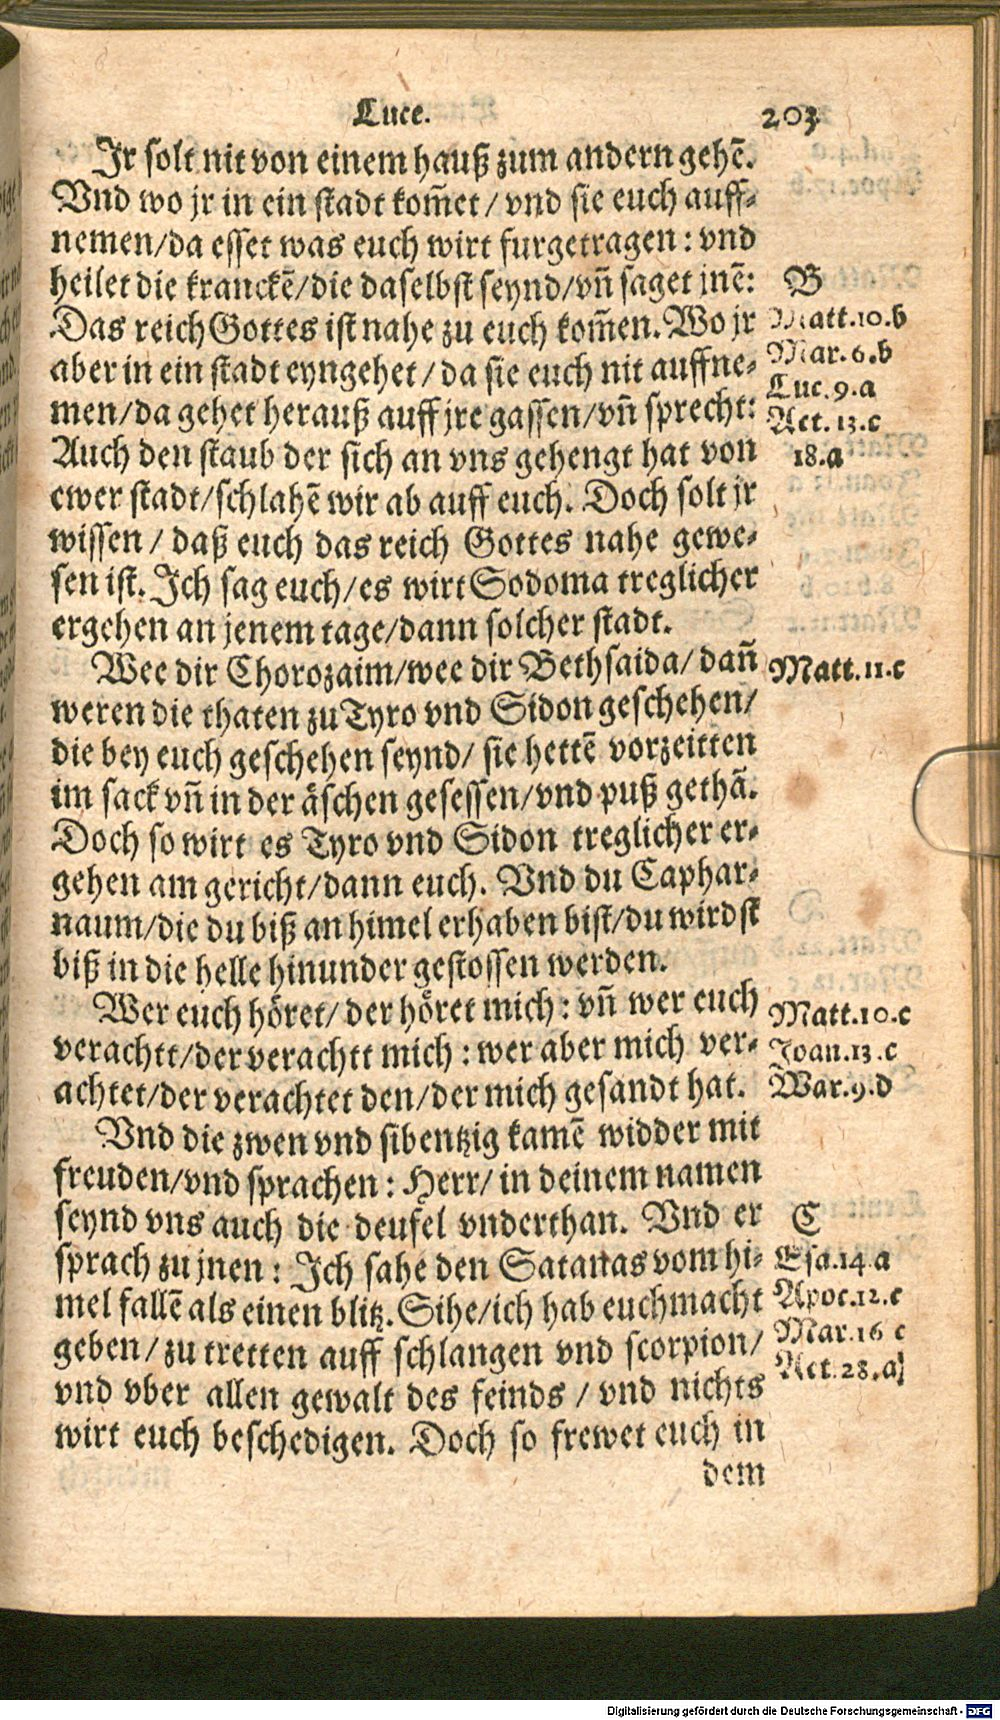 Luce.
203
Jr solt nit von einem hauß zum andern gehē.
Vnd wo jr in ein stadt kom̄et / vnd sie euch auff-
nemen/da esset was euch wirt furgetragen: vnd
heilet die kranckē/die daselbst seynd/vn̄ saget jnē:
Das reich Gottes ist nahe zu euch kom̄en. Wo jr
aber in ein stadt eyngehet / da sie euch nit auffne-
men/da gehet herauß auff jre gassen/vn̄ sprecht:
Auch den staub der sich an vns gehengt hat von
ewer stadt/schlahē wir ab auff euch. Doch solt jr
wissen / daß euch das reich Gottes nahe gewe-
sen ist. Ich sag euch/es wirt Sodoma treglicher
ergehen an jenem tage/dann solcher stadt.
Wee dir Chorozaim/wee dir Bethsaida/ dan̄
weren die thaten zu Tyro vnd Sidon geschehen/
die bey euch geschehen seynd/ sie hettē vorzeitten
im sack vn̄ in der äschen gesessen/vnd puß gethā.
Doch so wirt es Tyro vnd Sidon treglicher er-
gehen am gericht/dann euch. Vnd du Caphar-
naum/die du biß an himel erhaben bist/du wirdst
biß in die helle hinunder gestossen werden.
Wer euch höret/ der höret mich : vn̄ wer euch
verachtt/der verachtt mich : wer aber mich ver-
achtet/der verachtet den/der mich gesandt hat.
Vnd die zwen vnd sibentzig kamē widder mit
freuden/vnd sprachen : Herr/ in deinem namen
seynd vns auch die deufel vnderthan. Vnd er
sprach zu jnen : Ich sahe den Satanas vom hi-
mel fallē als einen blitz. Sihe/ich hab euch macht
geben / zu tretten auff schlangen vnd scorpion/
vnd vber allen gewalt des feinds / vnd nichts
wirt euch beschedigen. Doch so frewet euch in
dem
B
Matt.10.b
Mar.6.b
Luc.9.a
Act.13.c
18.a
Matt.11.c
Matt.10.c
Joan.13.c
Mar.9.d
C
Esa.14.a
Apoc.12.c
Mar.16 c
Act.28.a
Digitalisierung gefördert durch die Deutsche Forschungsgemeinschaft - DFG